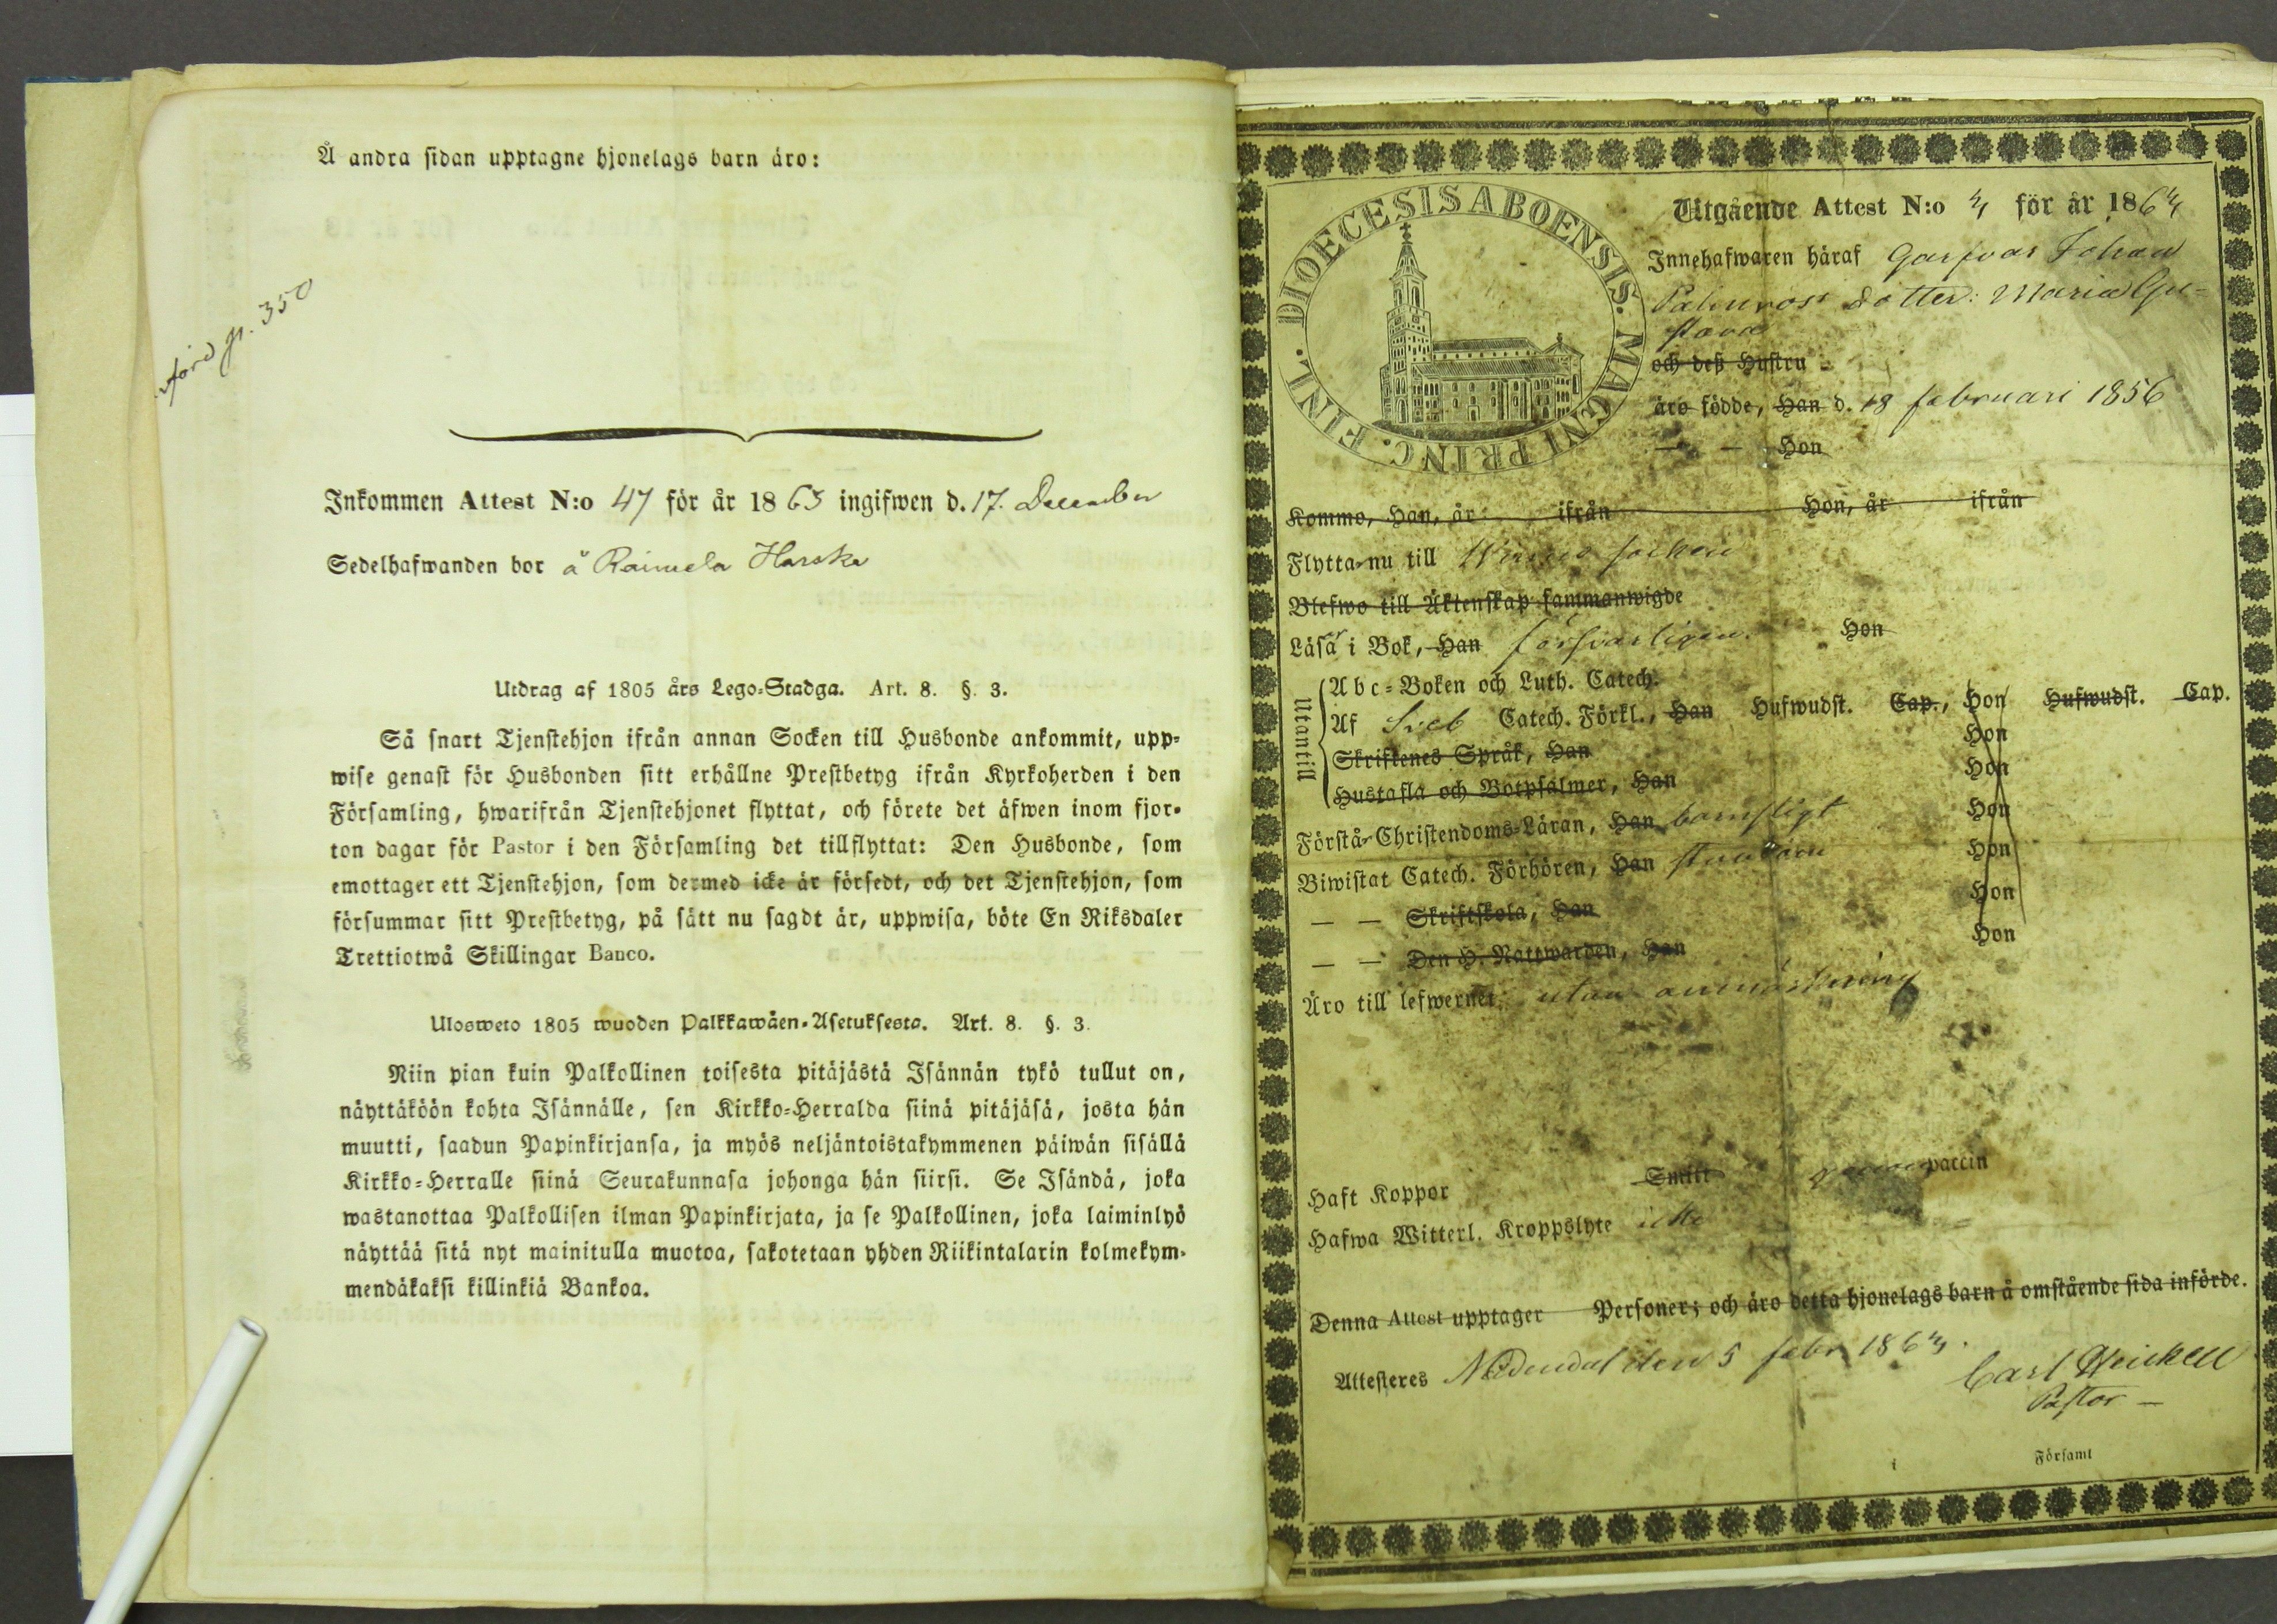 Å andra sidan upptagne hjonelags barn äro:
förd p. 350
Inkommen Attest N:o 47 för år 1863 ingifwen d. 17. December
Sedelhafwanden bor å Raimela Harska
Utdrag af 1805 års Lego-Stadga. Art. 8. §. 3.
Så snart Tjenstehjon ifrån annan Socken till Husbonde ankommit, upp-
wise genast för Husbonden sitt erhållne Prestbetyg ifrån Kyrkoherden i den
Församling, hwarifrån Tjenstehjonet flyttat, och förete det äfwen inom fjor-
ton dagar för Pastor i den Församling det tillflyttat: Den Husbonde, som
emottager ett Tjenstehjon, som dermed icke är försedt, och det Tjenstehjon, som
försummar sitt Prestbetyg, på sätt nu sagdt är, uppwisa, böte En Riksdaler
Trettiotwå Skillingar Banco.
Ulosweto 1805 wuoden Palkkawäen-Asetuksesta. Art. 8. §. 3.
Niin pian kuin Palkollinen toisesta pitäjästä Isännän tykö tullut on,
näyttäköön kohta Isännälle, sen Kirkko-Herralda siinä pitäjäsä, josta hän
muutti, saadun Papinkirjansa, ja myös neljäntoistakymmenen päiwän sisällä
Kirkko-Herralle siinä Seurakunnasa johonga hän siirsi. Se Isändä, joka
wastanottaa Palkollisen ilman Papinkirjata, ja se Palkollinen, joka laiminlyö
näyttää sitä nyt mainitulla muotoa, sakotetaan yhden Riikintalarin kolmekym-
mendäkaksi killinkiä Bankoa.
DIOECESIS ABOENSIS. MAGNI PRINC. FINL.
Utgående Attest N:o 4 för år 1864
Innehafwaren häraf Garfvar Johan
Palmros dotter: Maria Gu-
stava
och deß Hustru
äro födde, Han d. 18 februari 1856
— — Hon
Kommo, Han, år ifrån Hon, år ifrån
Flytta nu till socken
Blefwo till Äktenskap sammanwigde
Läsa i Bok, Han försvarligen. Hon
Utantill
Abc-Boken och Luth. Catech.
Af Sveb Catech. Förkl., Han Hufwudst. Cap., Hon Hufwudst. Cap.
Skriftenes Språk, Han Hon
Hustafla och Botpsalmer, Han Hon
Förstå Christendoms-Läran, Han barnsligt Hon
Biwistat Catech. Förhören, Han Hon
— — Skriftskola, Han Hon
— — Den H. Nattwarden, Han Hon
Äro till lefwernet utan anmärkning
Haft Koppor Smitt vaccin
Hafwa Witterl. Kroppslyte icke
Denna Attest upptager Personer; och äro detta hjonelags barn å omstående sida införde.
Attesteras Nådendal den 5 febr. 1864.
Carl Weickell
Pastor —
i Församl